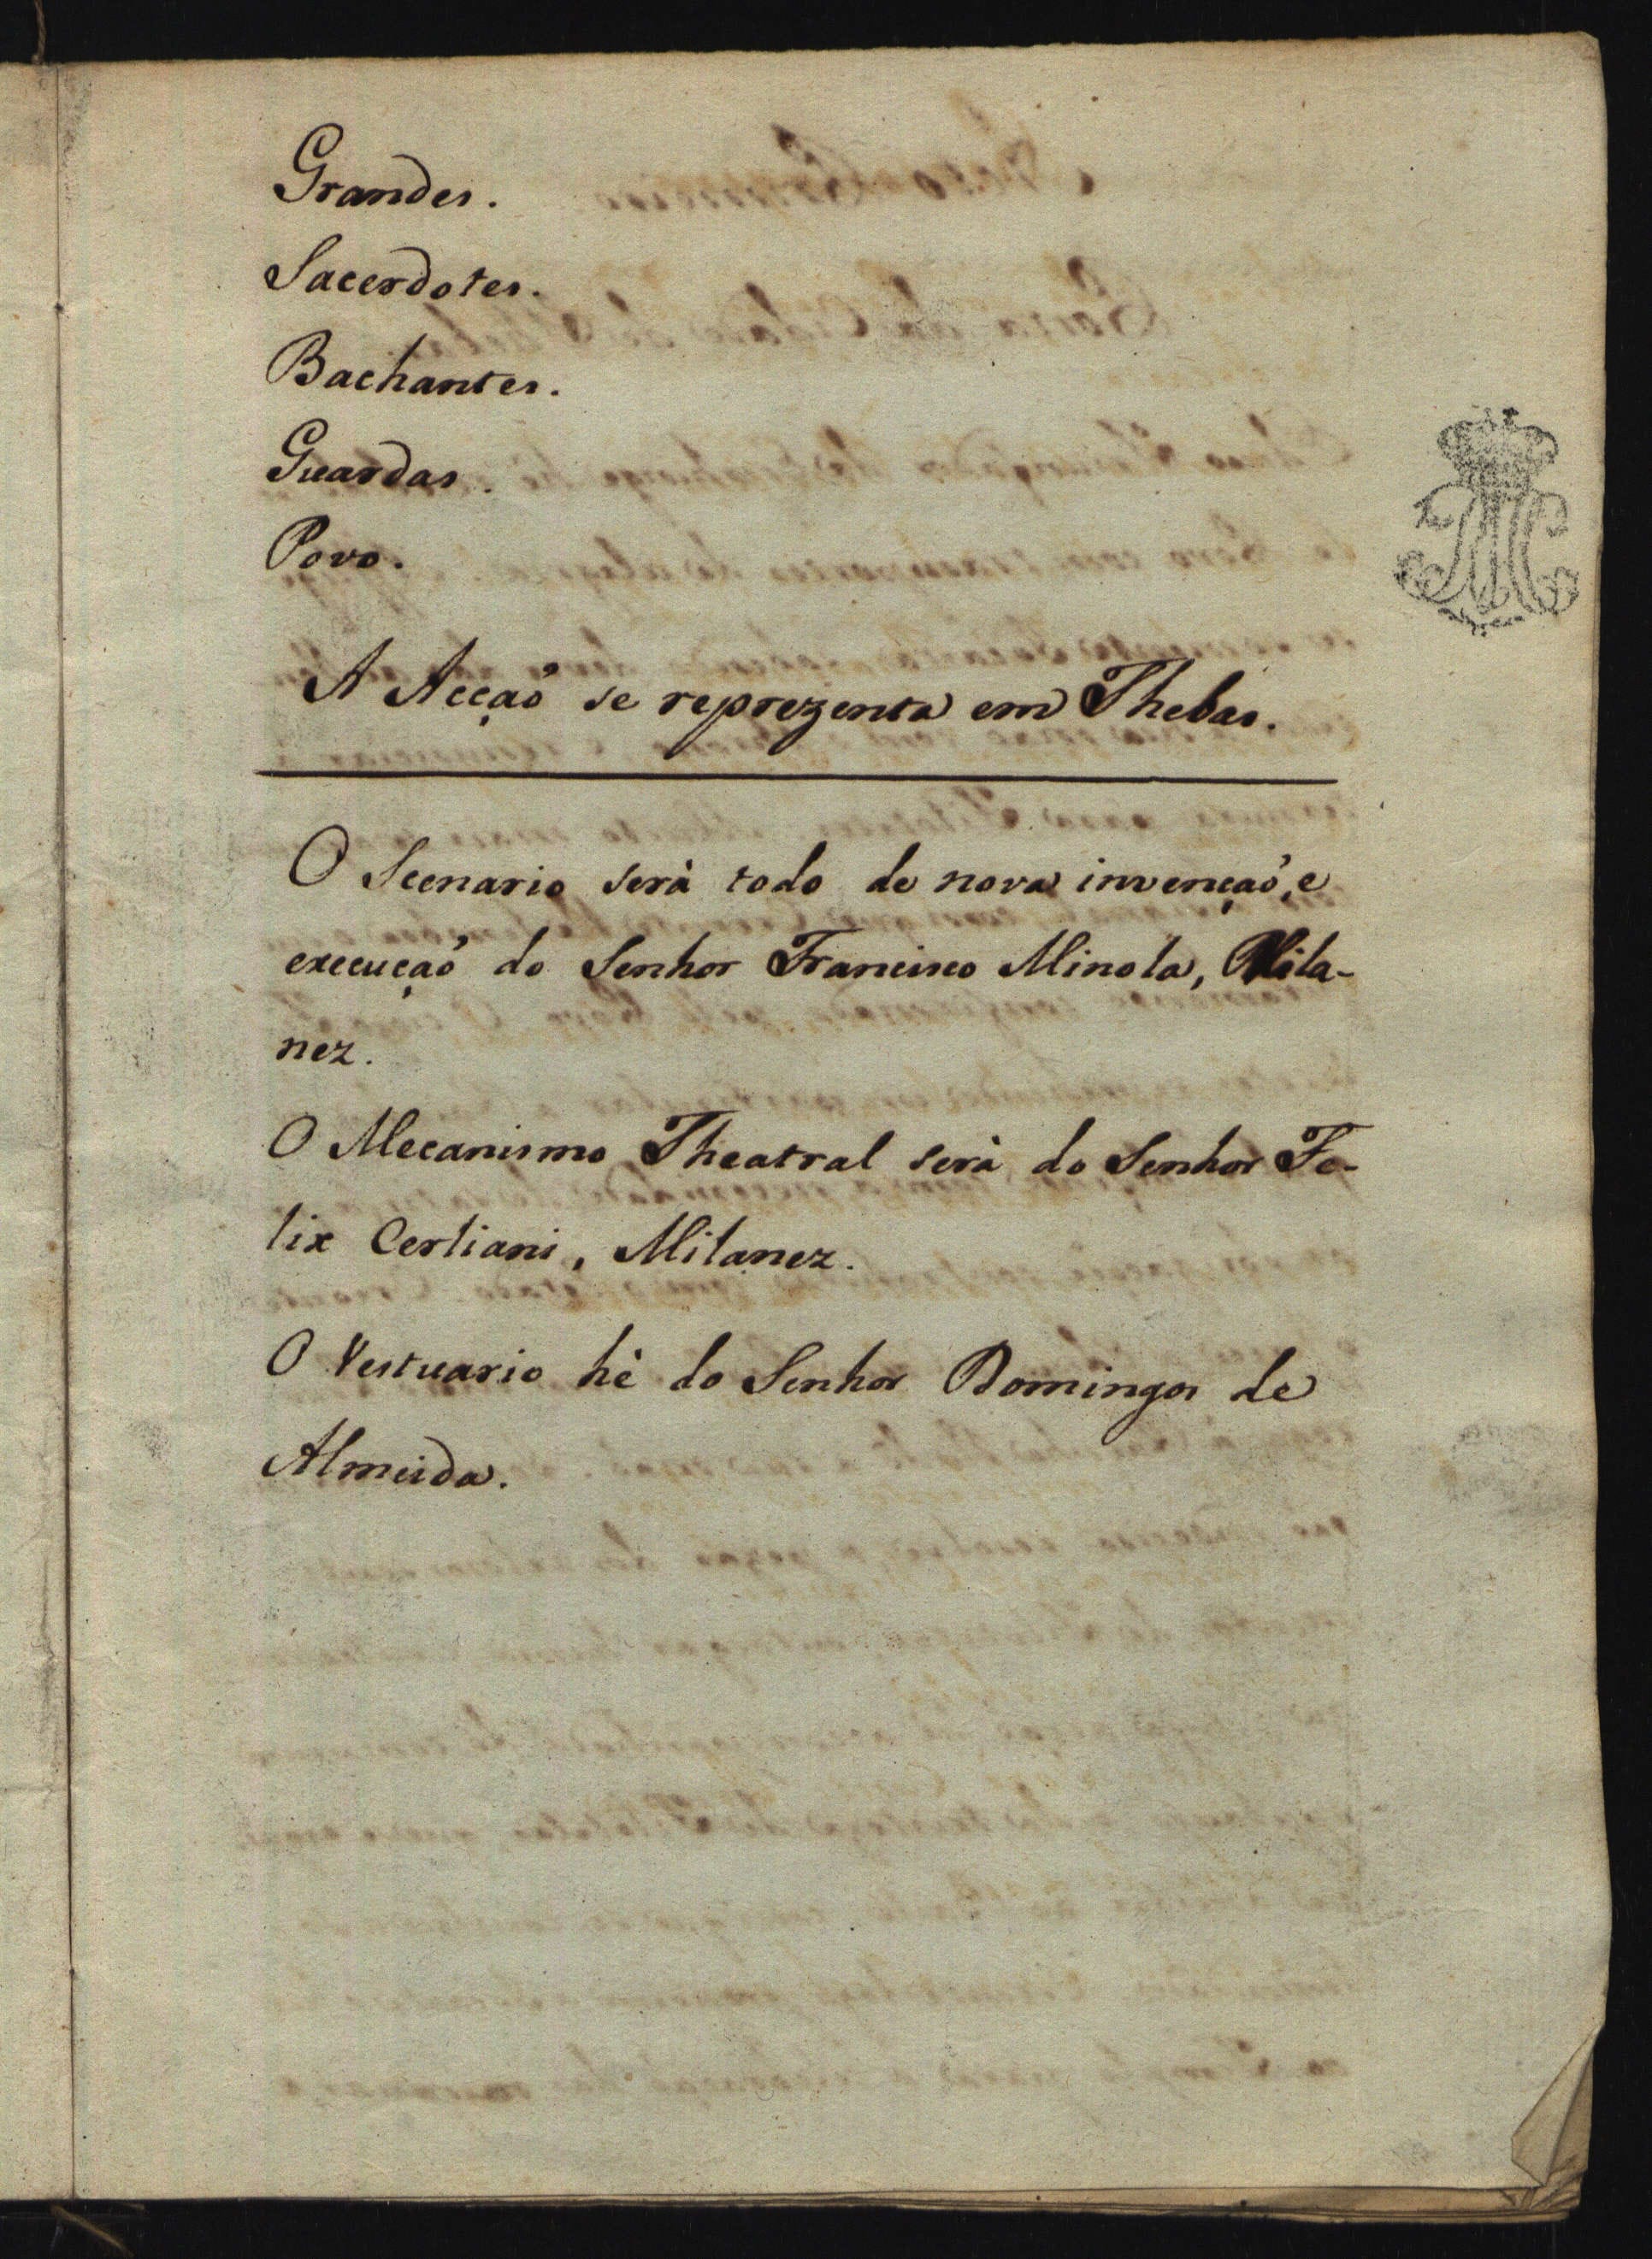 Grandes.
Sacerdotes.
Bachantes.
Guardas.
Povo.
A Acçaõ se reprezenta em Thebas.
O Scenario serà todo de nova invençaõ, e
execuçaõ do Senhor Francisco Minola, Mila-
nez.
O Mecanismo Theatral serà do Senhor Fe-
lix Certiani, Milanez.
O Vestuario hè do Senhor Domingos de
Almeida.